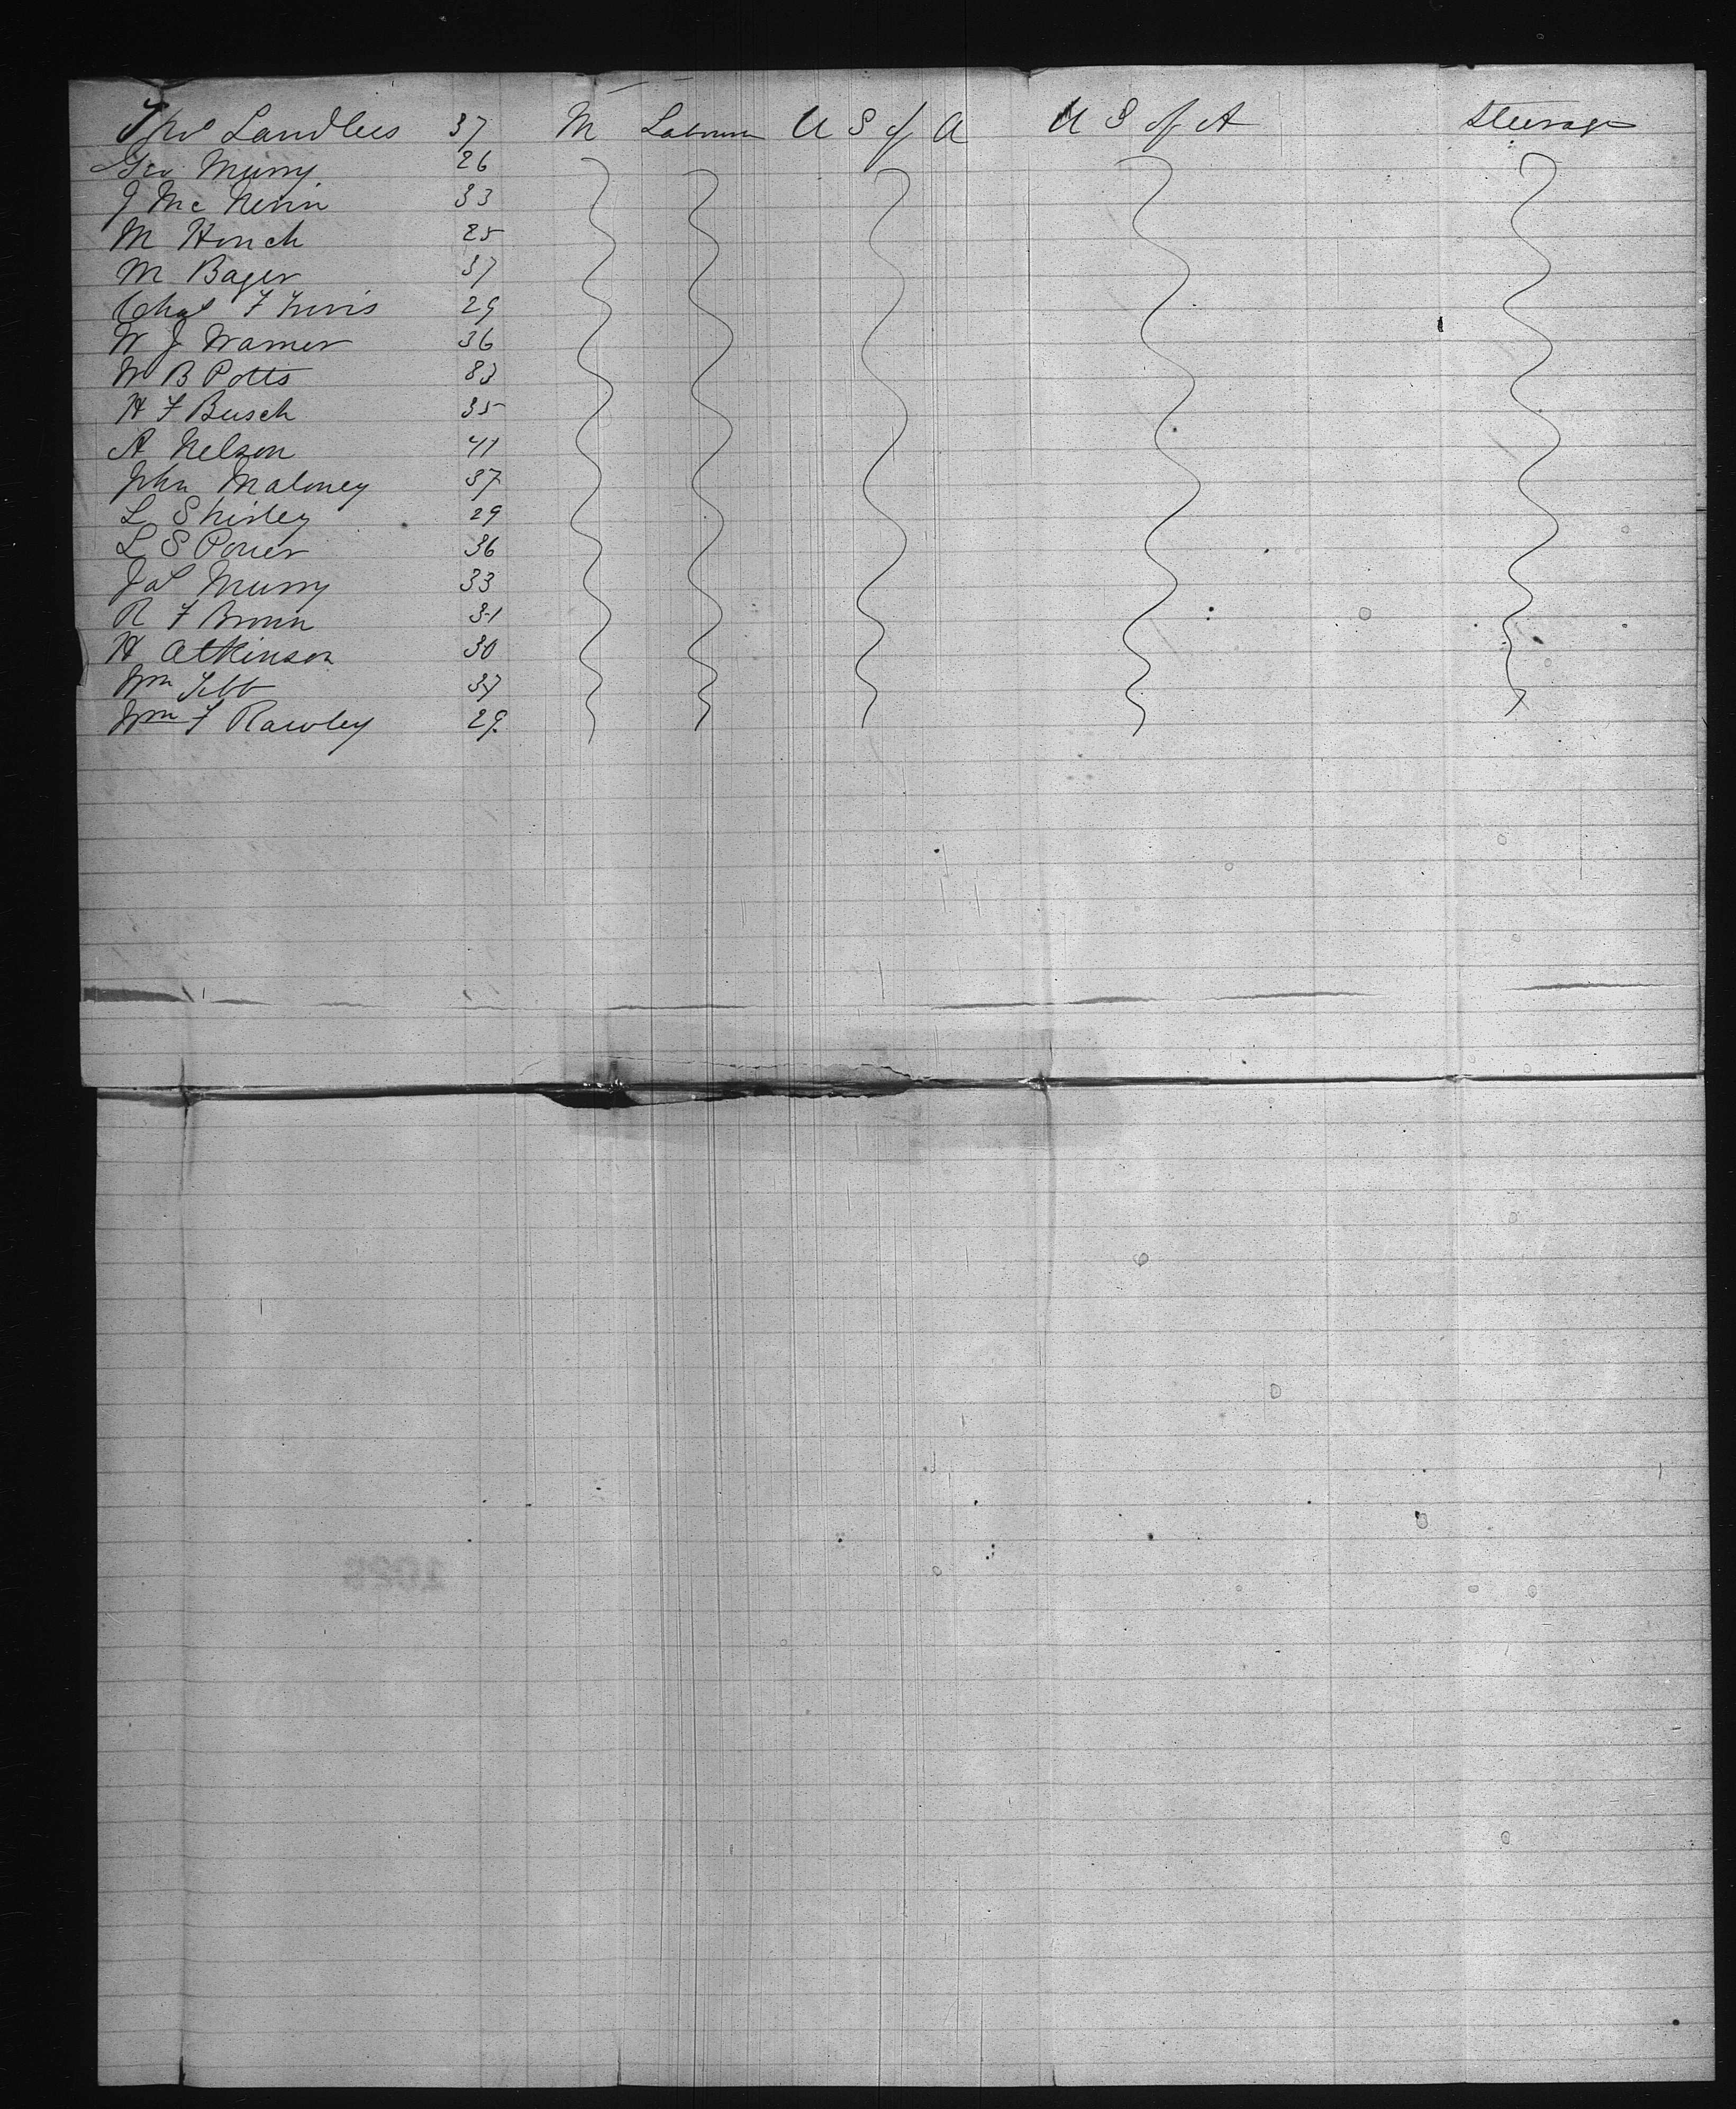 Thos Landles 37 M Labourer U S of A U S of A Steerage
Geo Murry 26
J Mc Nevin 33
M Honch 25
M Bager 37
Chas F 29
W J Warner 36
W B Potts 33
H F Busch 35
A Nelson 41
John Maloney 37
L Shirley 29
L S Power 36
Jas Murry 33
R F Brown 31
H Atkinson 30
Wm Tebb 37
Wm F Rawley 29